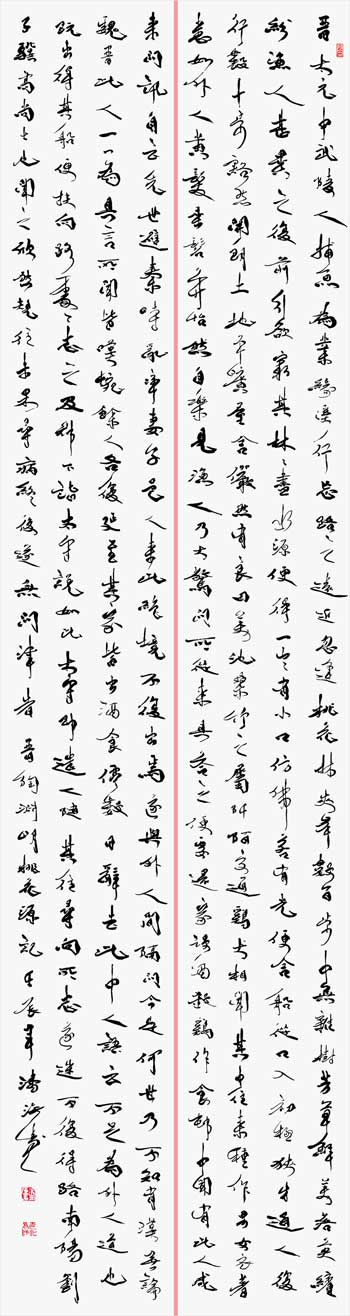 晉太元中武陵人捕魚為業緣溪行忘路之遠近忽逢桃花林夾岸數百步中無雜樹芳草鮮美落英繽
紛漁人甚異之復前行欲窮其林〻盡水源便得一山〻有小口仿佛若有光便舍船從口入初極狹才通人復
行數十步豁然開朗土地平曠屋舍儼然有良田美池桑竹之屬阡陌交通雞犬相聞其中往來種作男女衣著
悉如外人黃髮垂髫并怡然自樂見漁人乃大驚問所從來具答之便要還家設酒殺雞作食村中聞有此人咸
來問訊自云先世避秦時亂率妻子邑人來此絕境不復出焉遂與外人間隔問今是何世乃不知有漢無論
魏晉此人一一為具言所聞皆嘆惋餘人各復延至其家皆出酒食停數日辭去此中人語云不足為外人道也
既出得其船便扶向路處〻志之及郡下詣太守說如此太守即遣人隨其往尋向所志遂迷不復得路南陽劉
子驥高尚士也聞之欣然規往未果尋病終後遂無問津者 晉陶淵明桃花源記 壬辰年潘海